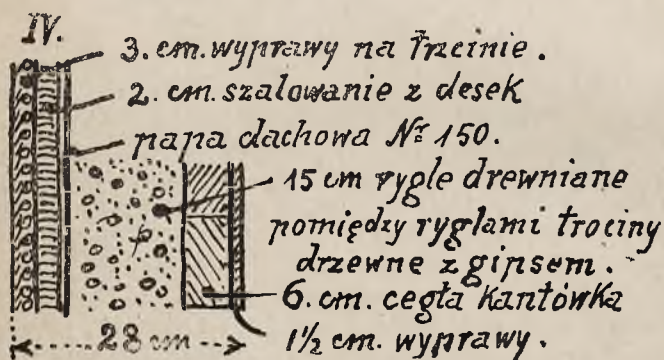 IV.
3. cm. wyprawy na trzcinie.
2. cm. szalowanie z desek
papa dachowa Nr 150.
15 cm rygle drewniane
pomiędzy ryglami trociny
drzewne z gipsem.
6. cm. cegła kantówka
1½ cm. wyprawy.
28 cm